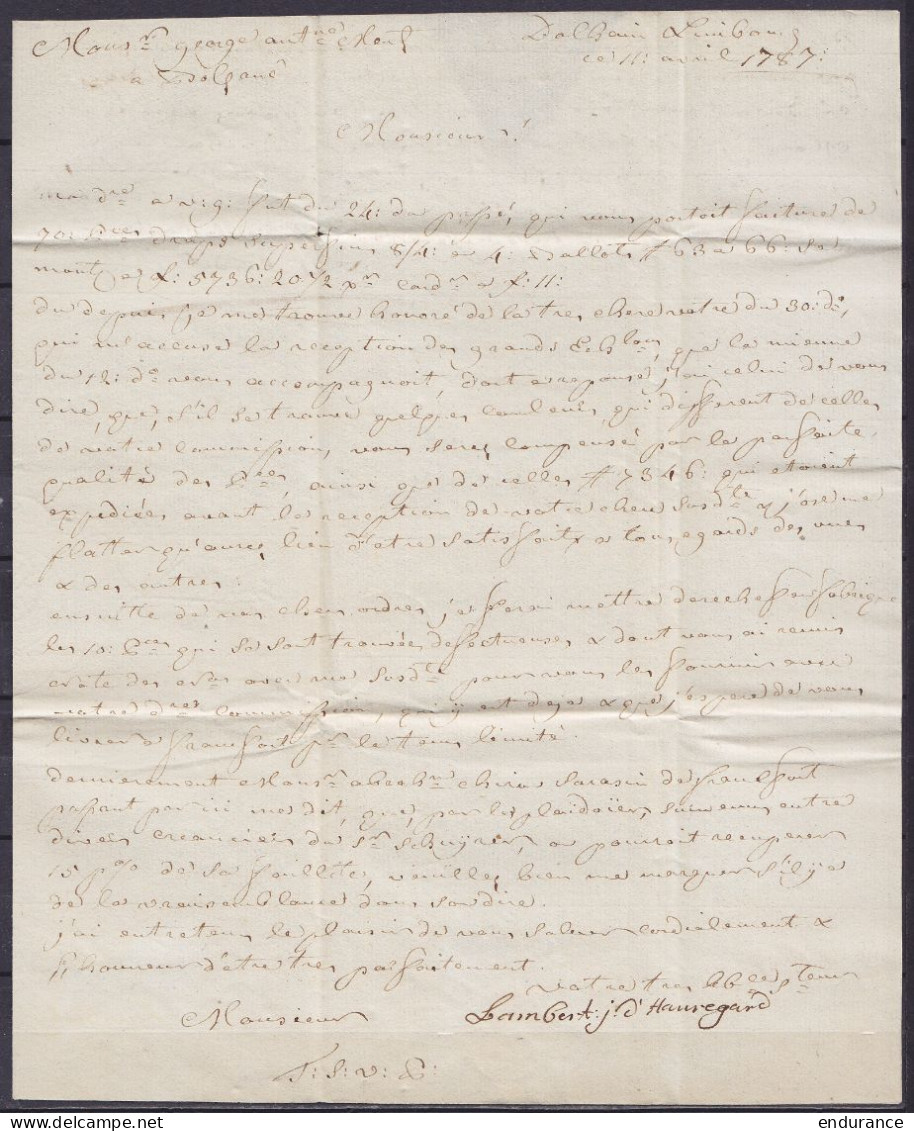 Mons.r george ant.ne Menz
a Bolzano
Dalheim Limbourg
ce 11: avril 1787:
Monsieur!
ma d.re a v: g: fut du 24: du passé, qui vous portoit facture de
70: P.ces draps superfins 8/4: en 4: Ballots # 63 a 66: se
mont. a f: 5736: 20 1/2 p.r a f: 11:
du depuis je me trouve honoré de la tres chere votre du 30: d.o,
qui m'accuse la reception des grands, que la mienne
du 12: d.o vous accompagnoit, dont en reponse, j'ai celui de vous
dire, que, s'il se trouve quelques couleurs, qui different de celles
de votre commission, vous serez compensé par la parfaite
qualité des P.ces, ainsi que de celles # 7346: qui etoient
expediées avant la reception de votre chere susd.te & j'ose me
flatter qu'aurez lieu d'etre satisfait a tous egards des unes
& des autres:
ensuitte de vos chers ordres, je ferai mettre derechef en fabrique
les 10: P.ces qui se sont trouvée defectueuses, & dont vous ai remis
note des avec ma susd.te pour vous les fournir avec
votre d.re commission, qui y est deja & que j'espere de vous
livrer a francfort p.r le tems limité.
dernierement Mons.r chiron sarasin de francfort
passant par ici me dit, que, par les plaidoiers, survenu entre
divers creanciers du S.r, on pourroit recuperer
15 p% de sa faillite, veuillez bien me marquer s'il y a
de la vraisemblance dans son dire.
j'ai entretems le plaisir de vous saluer cordialement &
l'honneur d'être tres parfaitement.
Monsieur
votre tres
Lambert: j: d'Hauregard
T: S: v: P:
endurance